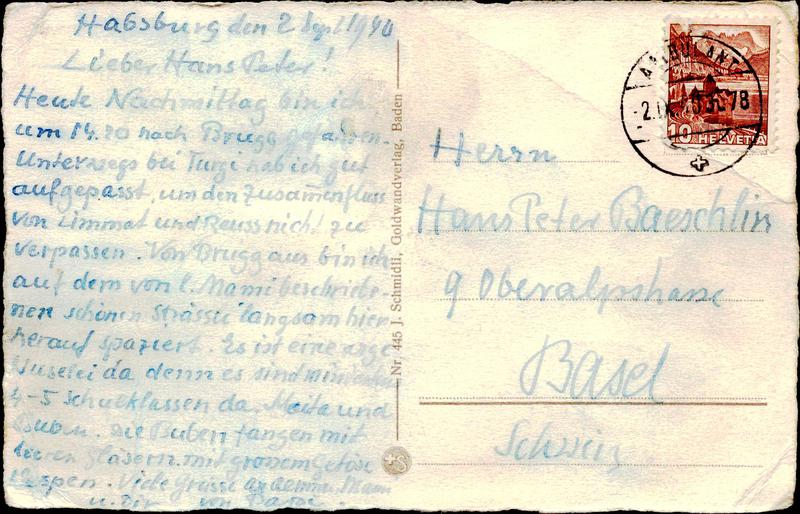 Habsburg den 2 Sept 1940
Lieber Hans Peter!
Heute Nachmittag bin ich
um 14.20 nach Brugg gefahren.
Unterwegs bei Turgi hab ich gut
aufgepasst, um den Zusammenfluss
von Limmat und Reuss nicht zu
verpassen. Von Brugg aus bin ich
auf dem von l. Mami beschriebe-
nen schönen Strässli langsam hier
herauf spaziert. Es ist eine
da denn es sind
4-5 Schulklassen da. Maitli und
Buben. Die Buben fangen mit
leeren Gläsern mit grossem Getöse
Wespen. Viele Grüsse
u. Dir von
Nr. 445 J. Schmidli, Goldwandverlag, Baden
10 HELVETIA
Herrn
Hans Peter Baeschlin
9 Oberalpstrasse
Basel
Schweiz